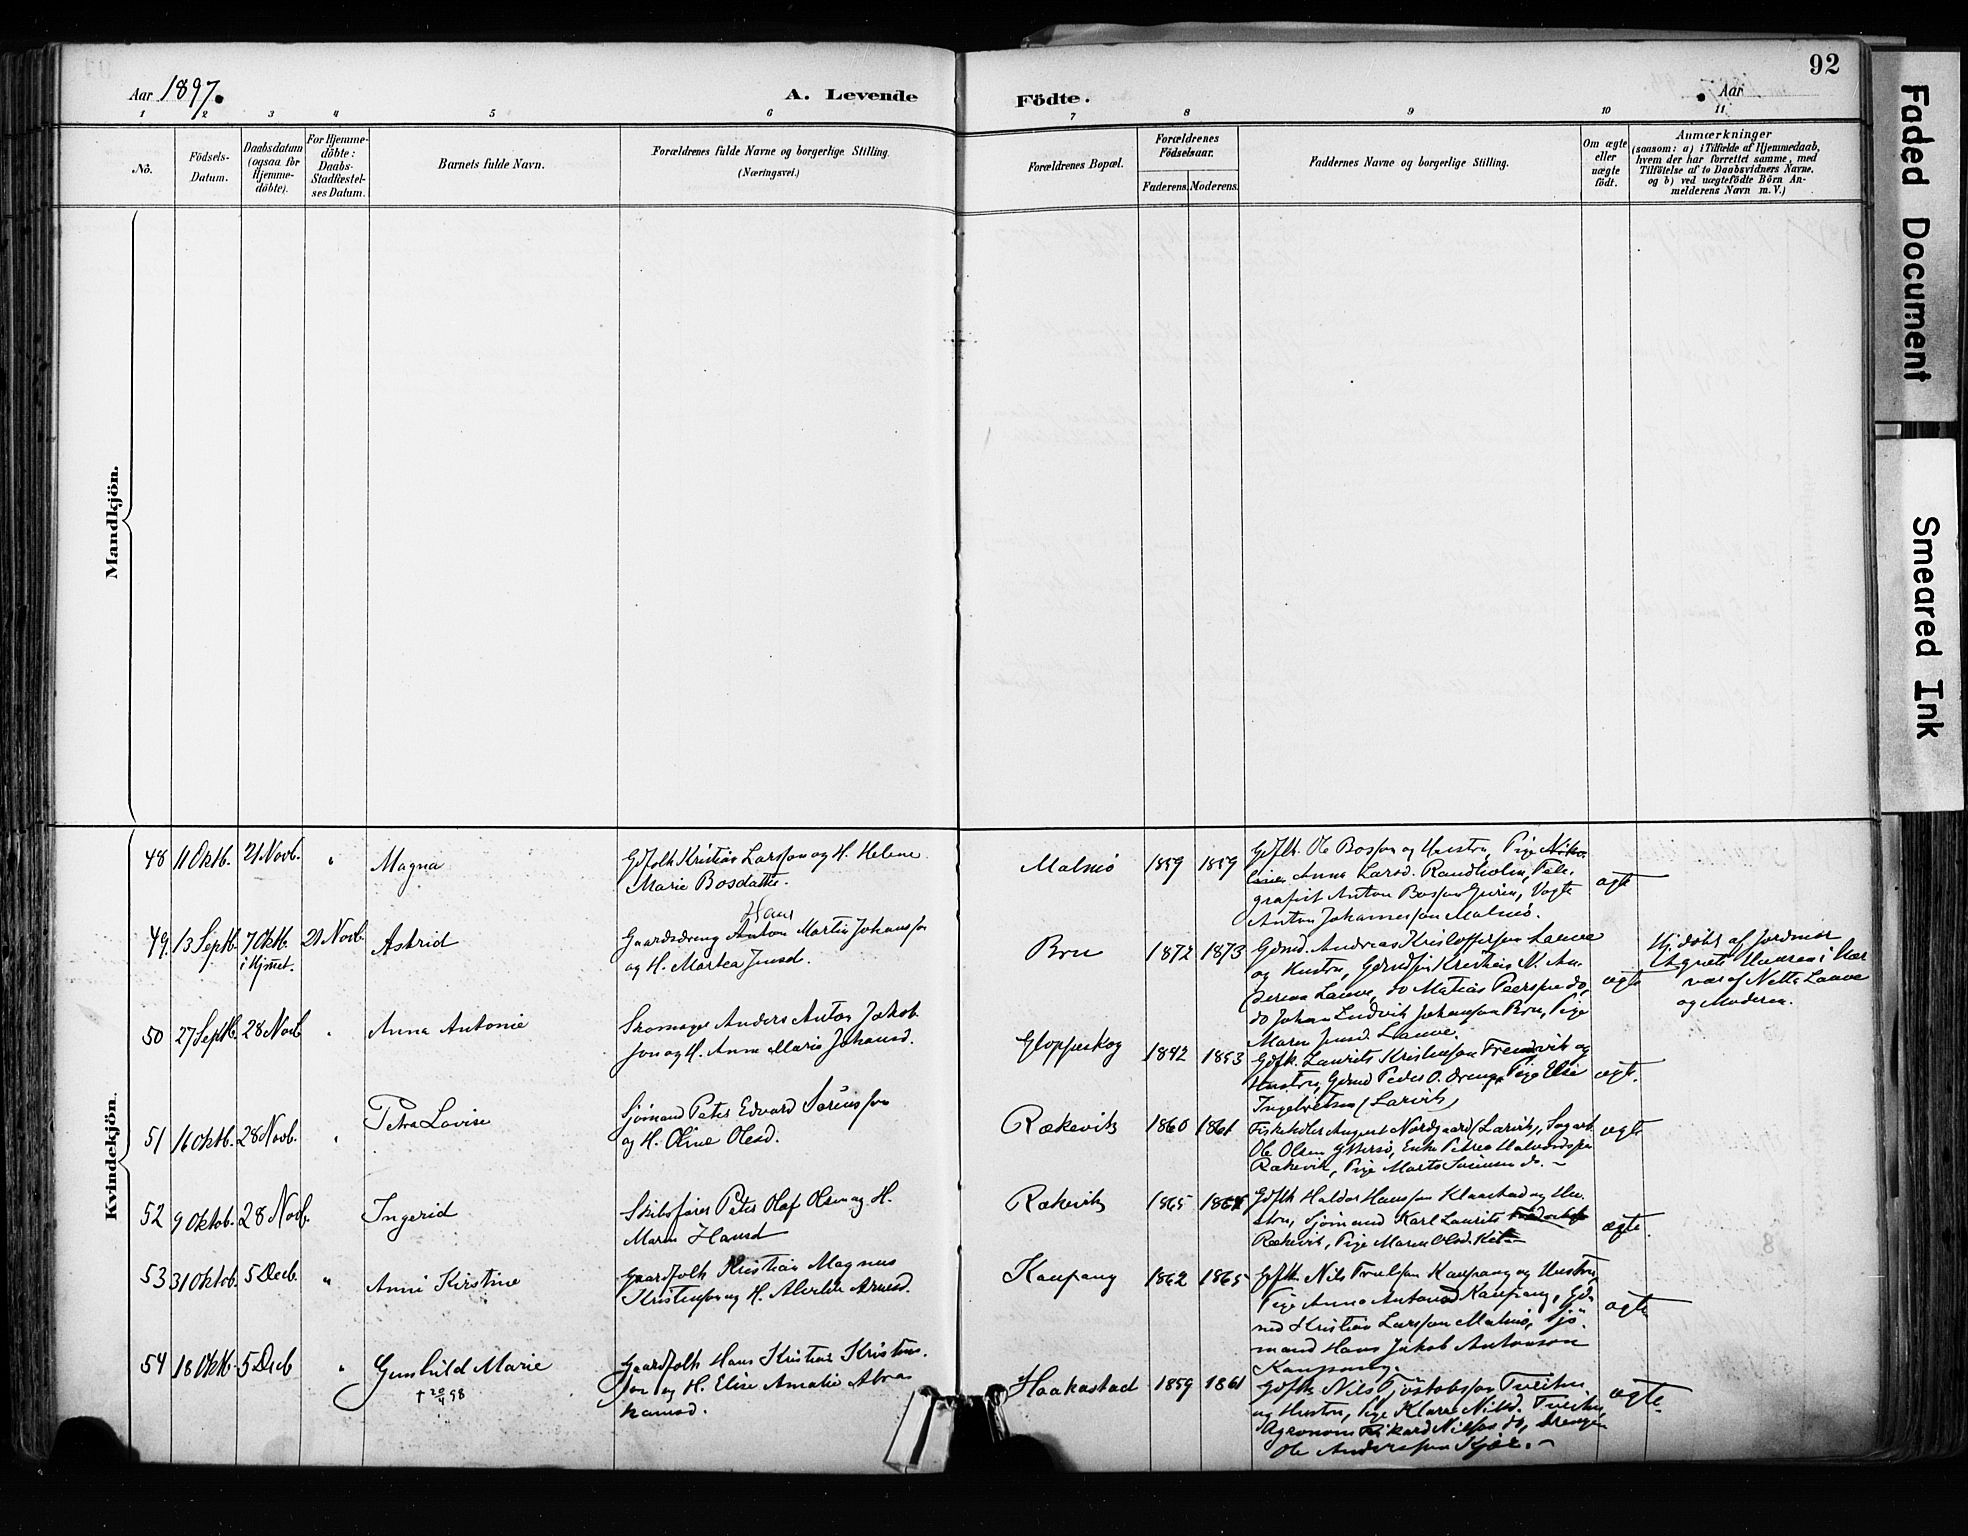 92
Aar 1897.
A. Levende Födte.
Aar
1 2 3 4 5 6 7 8 9 10 11
No.
Födsels-
Datum.
Daabsdatum
(ogsaa for
Hjemme-
döbte).
For Hjemme-
döbte:
Daabs-
Stadfæstel-
ses Datum.
Barnets fulde Navn.
Forældrenes fulde Navne og borgerlige Stilling.
(Næringsvei.)
Forældrenes Bopæl.
Forældrenes
Födselsaar.
Faderens. Moderens.
Faddernes Navne og borgerlige Stilling.
Om ægte
eller
uægte
födt.
Anmærkninger
(saasom: a) i Tilfælde af Hjemmedaab,
hvem der har forrettet samme, med
Tilföielse af to Daabsvidners Navne,
og b) ved uægtefödte Börn An-
melderens Navn m. V.)
Mandkjön.
Kvindekjön.
48 11 Oktb. 21 Novb. " Magna
Gdfolk Kristian Larsson og H. Helene
Marie Bosdatter.
Malmö 1859 1859
Gdflk. Ole Bosson og Hustru, Pige
Anna Larsd. Randholm, Tele-
grafist Anton Bosson, Vogte
Anton Johannesson Malmö.
ægte
49. 13 Septb. 7 Oktb. 21 Novb. Astrid
i Hjmet.
Hans
Gaardsdreng Anton Martin Johansson
og H. Martea Jensd.
Bru 1872 1873
Gdmd. Andreas Kristoffersen Lauve
og Hustru, Kristian N. An-
Lauve, do Matias Peersen do,
do Johan Ludvik Johansson Bru, Pige
Maren Jensd. Lauve.
ægte
Hj.döbt af Jordmor
Agnete
var af Nette Lauve
og Moderen.
50 27 Septb. 28 Novb. " Anna Antonie
Skomager Anders Anton Jakob-
son og H. Anne Marie Johansd.
Gloppeskog 1842 1853
Gdfk. Laurits Kristenson og
Hustru, Gdmd Peder O. Pige Elise
(Larvik)
ægte.
51 16 Oktb. 28 Novb. " Petra Lovise
Sjömand Peter Edvard
og H. Oline Olesd.
Rækevik 1860 1861
August Nordgaard (Larvik),
Ole Olsen Enke Petrea
Rækevik, Pige Marte do.
ægte
52 9 Oktob. 28 Novb. Ingerid
Skibsförer Peter Olaf Olsen og H.
Maren Hansd
Rækevik 1865
Gdflk Haldor Hansson Klaastad og Hu-
stru, Sjömand Karl Laurits
Rækevik, Pige Maren Olsd.
ægte.
53 31 Oktob. 5 Decb. " Anni Kirstine
Gaardfolk Kristian Magnus
Kristenson og H. Alvilde Arnesd.
Kaupang 1862 1865
Gdflk Nils Trulsson Kaupang og Hustru,
Pige Anna Antond Kaupang, Gd-
md Kristian Larsson Malmö, Sjö-
mand Hans Jakob Antonson
Kaupang.
ægte
54 18 Oktb. 5 Decb " Gunhild Marie
† 20/4 98
Gaardfolk Hans Kristian Kristen-
son og H. Elise Amalie Abra-
hamsd.
Haakastad 1859 1861
Gdflk Nils
og Hustru, Pige Klara Nilsd.
Agronom Rikard Nilsson do, Drengen
Ole Andersson
ægte.
Faded Document
Smeared Ink